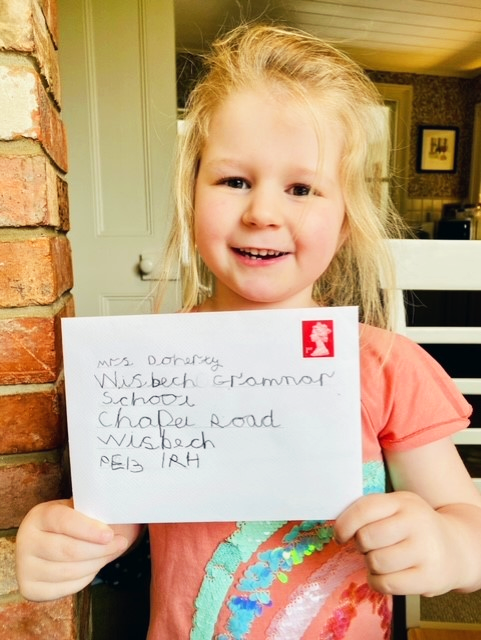 Mrs. Doherty
Wisbech Grammar
School
Chapel Road
Wisbech
PE13 1RH